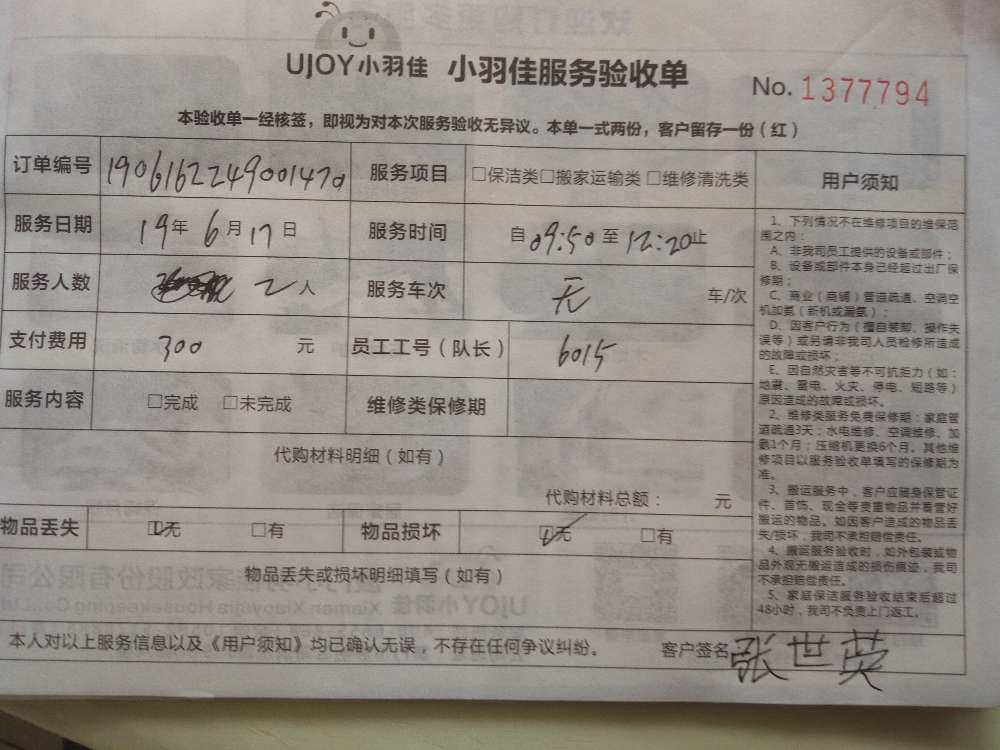 UJOY小羽佳 小羽佳服务验收单
No. 1377794
本验收单一经核签，即视为对本次服务验收无异议。本单一式两份，客户留存一份（红）
订单编号 190616224900147 服务项目 □保洁类□搬家运输类 □维修清洗类
服务日期 19年 6月17日 服务时间 自09:50至12:20止
服务人数 2人 服务车次 无 车/次
支付费用 300 元 员工工号（队长） 6015
服务内容 □完成 □未完成 维修类保修期
代购材料明细（如有）
代购材料总额： 元
物品丢失 ☑无 □有 物品损坏 ☑无 □有
物品丢失或损坏明细填写（如有）
本人对以上服务信息以及《用户须知》均已确认无误，不存在任何争议纠纷。 客户签名 张世英
用户须知
1、下列情况不在维修项目的维保范
围之内：
A、非我司员工提供的设备或部件；
B、设备或部件本身已经超过出厂保
修期；
C、商业（商铺）管道疏通、空调空
机加氨（新机或漏氨）；
D、因客户行为（擅自装卸、操作失
误等）或另请非我司人员检修所造成
的故障或损坏；
E、因自然灾害等不可抗拒力（如：
地震、雷电、火灾、停电、短路等）
原因造成的故障或损坏。
2、维修类服务免费保修期：家庭管
道疏通3天；水电维修、空调维修、加
氨1个月；压缩机更换6个月。其他维
修项目以服务验收单填写的保修期为
准。
3、搬运服务中，客户应随身保管证
件、首饰、现金等贵重物品并看管好
搬运的物品。如因客户造成的物品丢
失/损坏，我司不承担赔偿责任。
4、搬运服务验收时，如外包装或物
品外观无搬运造成的损伤痕迹，我司
不承担赔偿责任。
5、家庭保洁服务验收结束后超过
48小时，我司不负责上门返工。